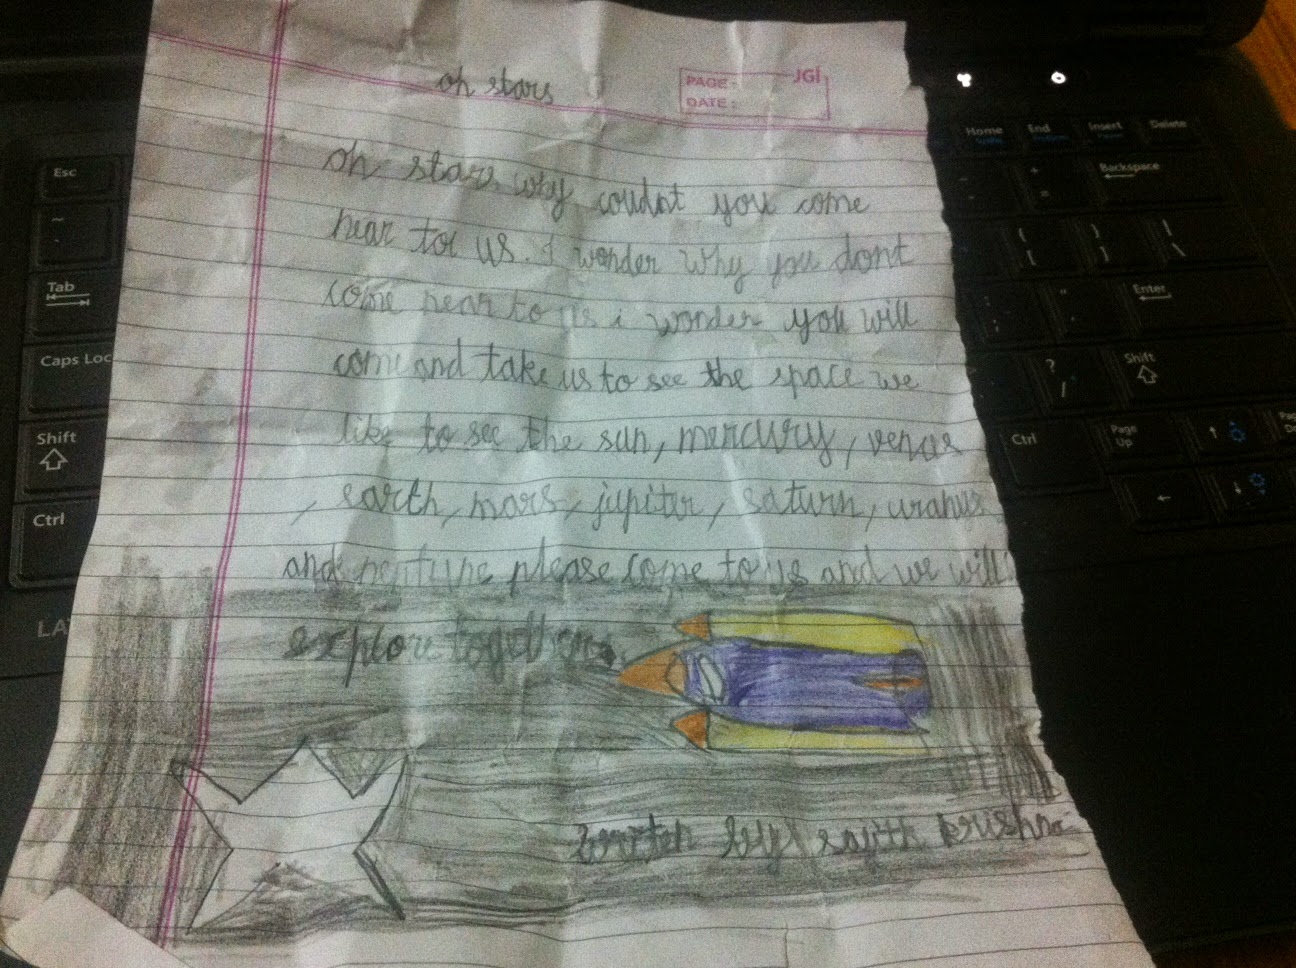 oh stars
PAGE:
JGI
DATE:
oh stars why couldnt you come
near tor us. I wonder why you dont
come near to us i wonder you will
come and take us to see the space we
like to see the sun, mercury, venus
, earth, mars, jupiter, saturn, uranus
and neptune please come to us and we will
explore together
written by sayith krishna
Esc
~
Tab
Caps Loc
Shift
Ctrl
LA
Home
End
Insert
Delete
+
=
Backspace
{
[
}
]
|
\
:
;
"
Enter
?
/
Shift
Ctrl
Page
Up